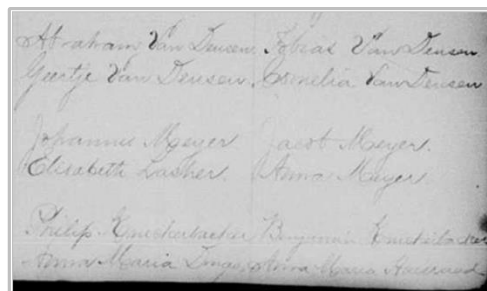 Abraham Van Deusen. Tobias Van Deusen
Geertje Van Deusen. Cornelia Van Deusen
Johannis Meyer Jacob Meyer.
Elisabeth Lasher. Anna Meyer.
Philip Knickerbacker Benjamin Knickerbacker
Anna Maria Dings. Anna Maria